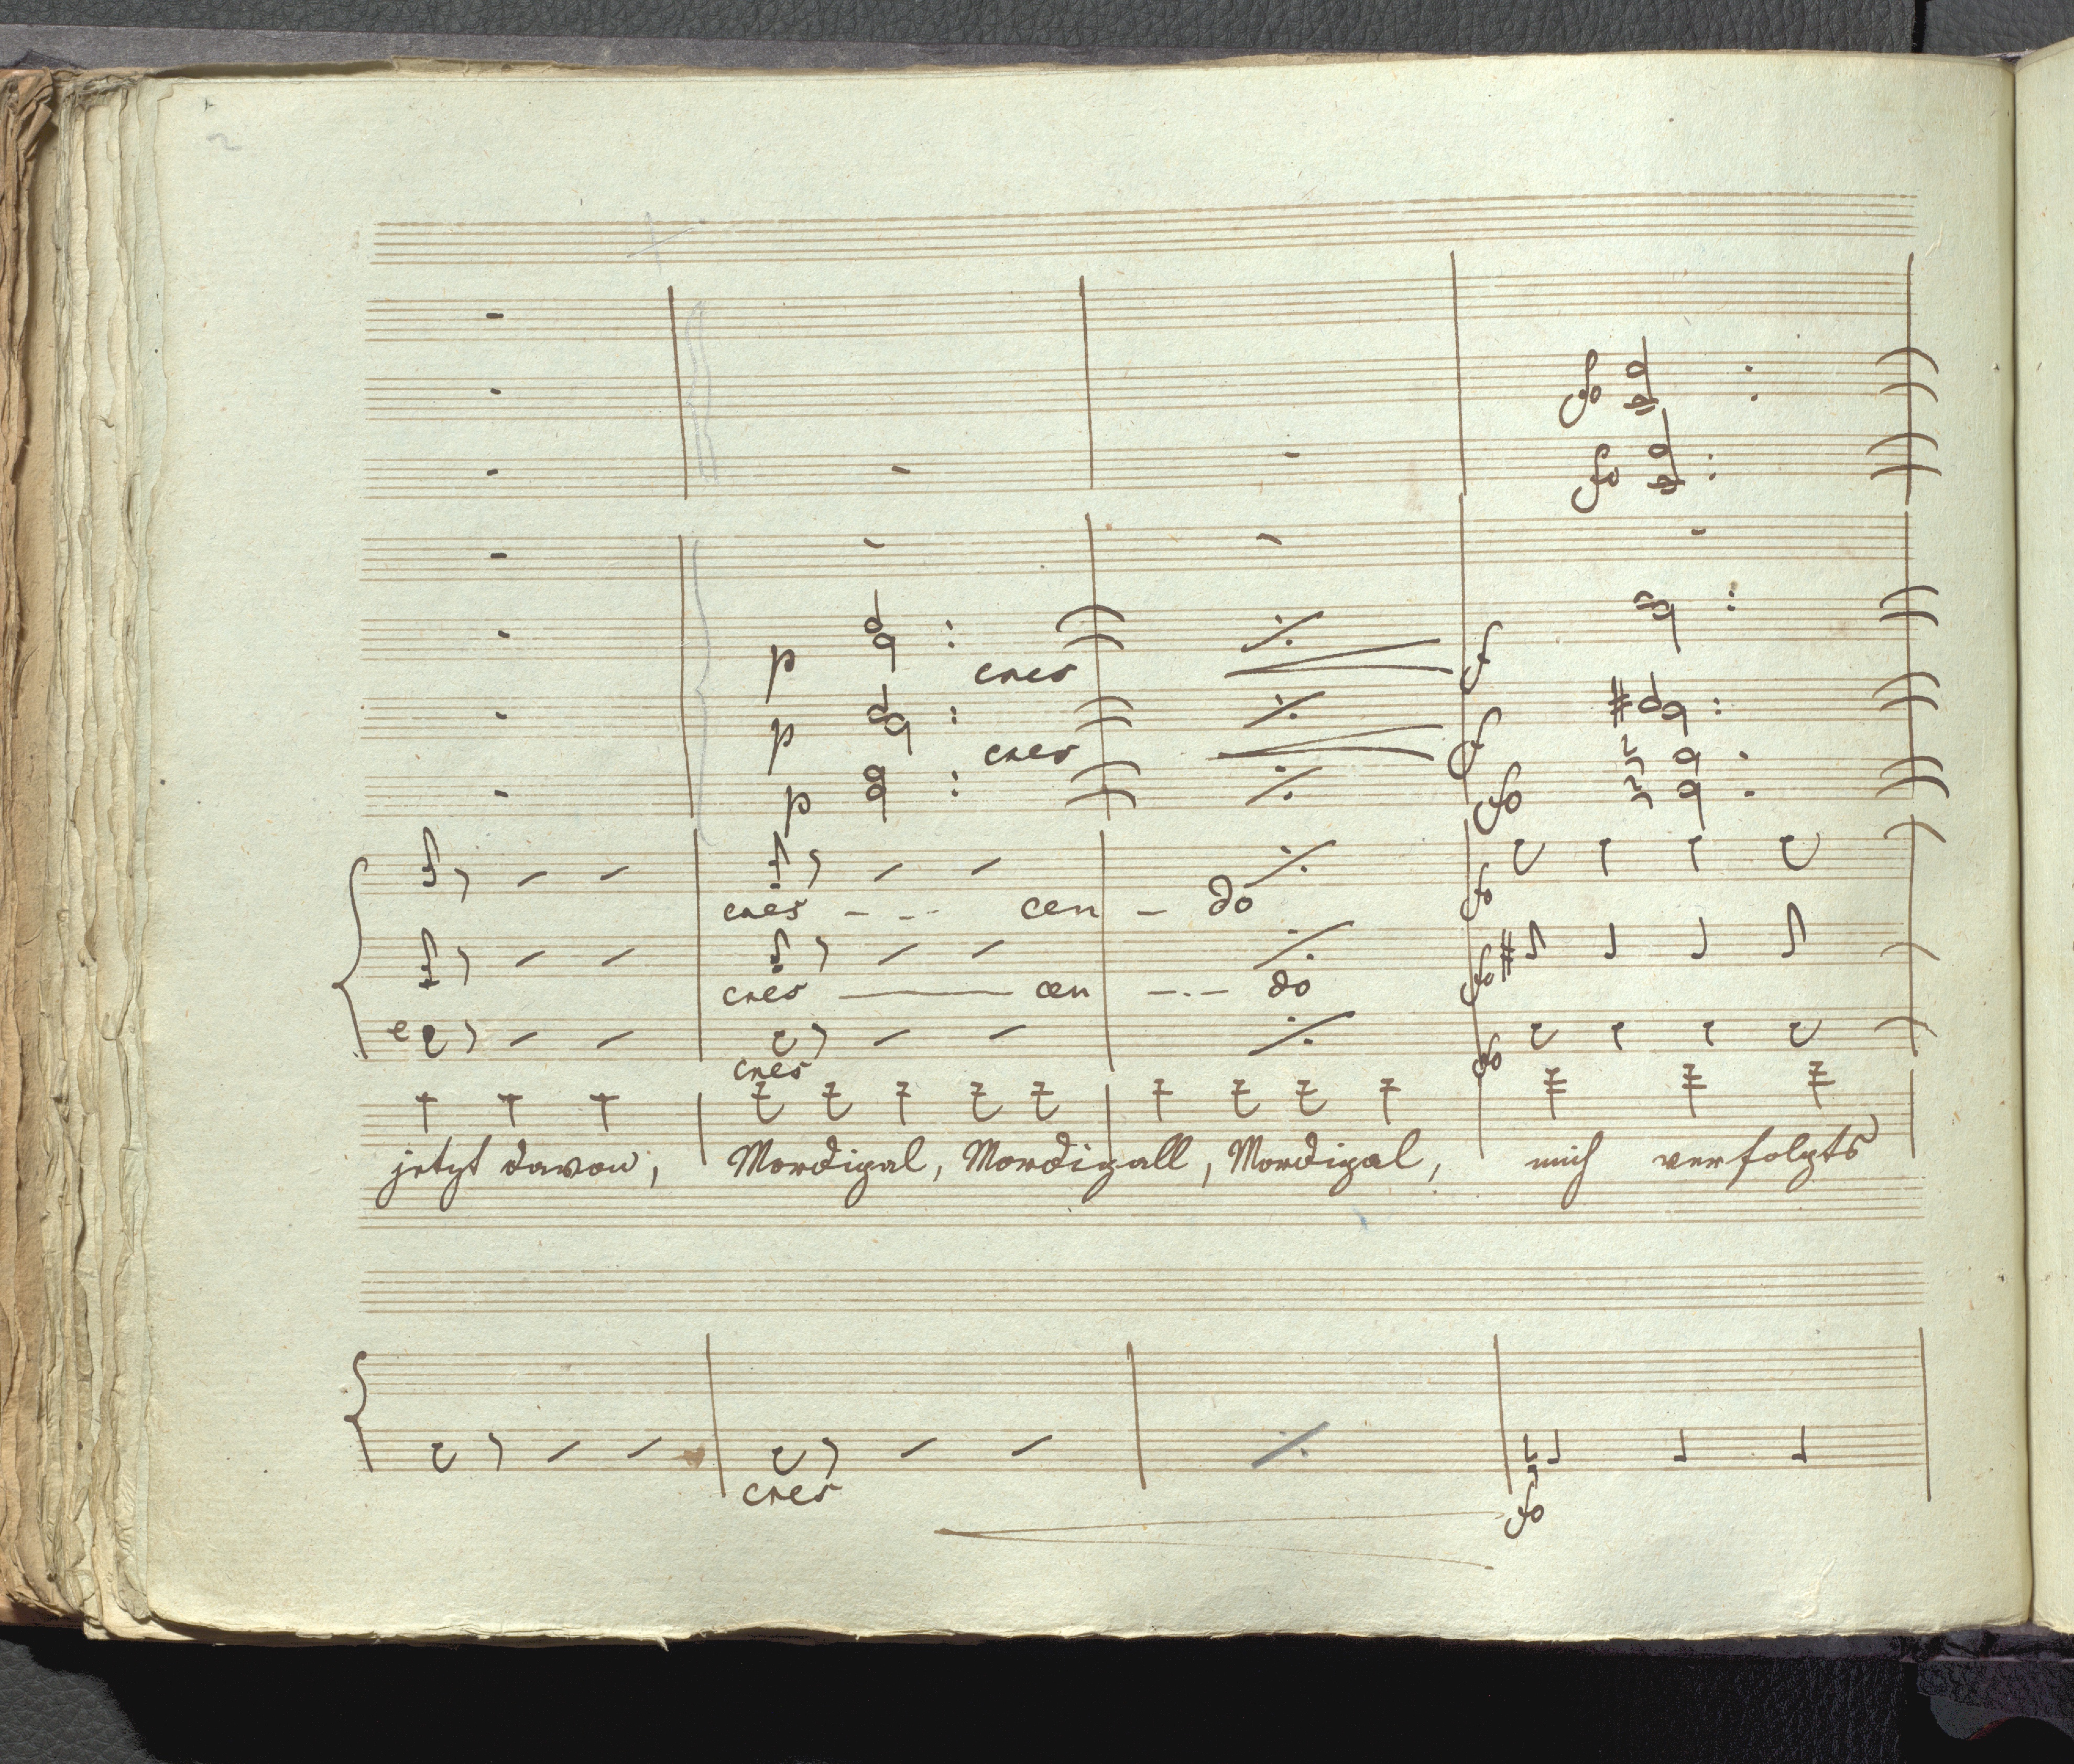 fo
fo
p cres f
p cres f
p fo
cres - - - cen - do fo
cres - cen - - - do fo
cres fo
jetzt davon, Mordigal, Mordigall, Mordigal, mich verfolgts
cres fo